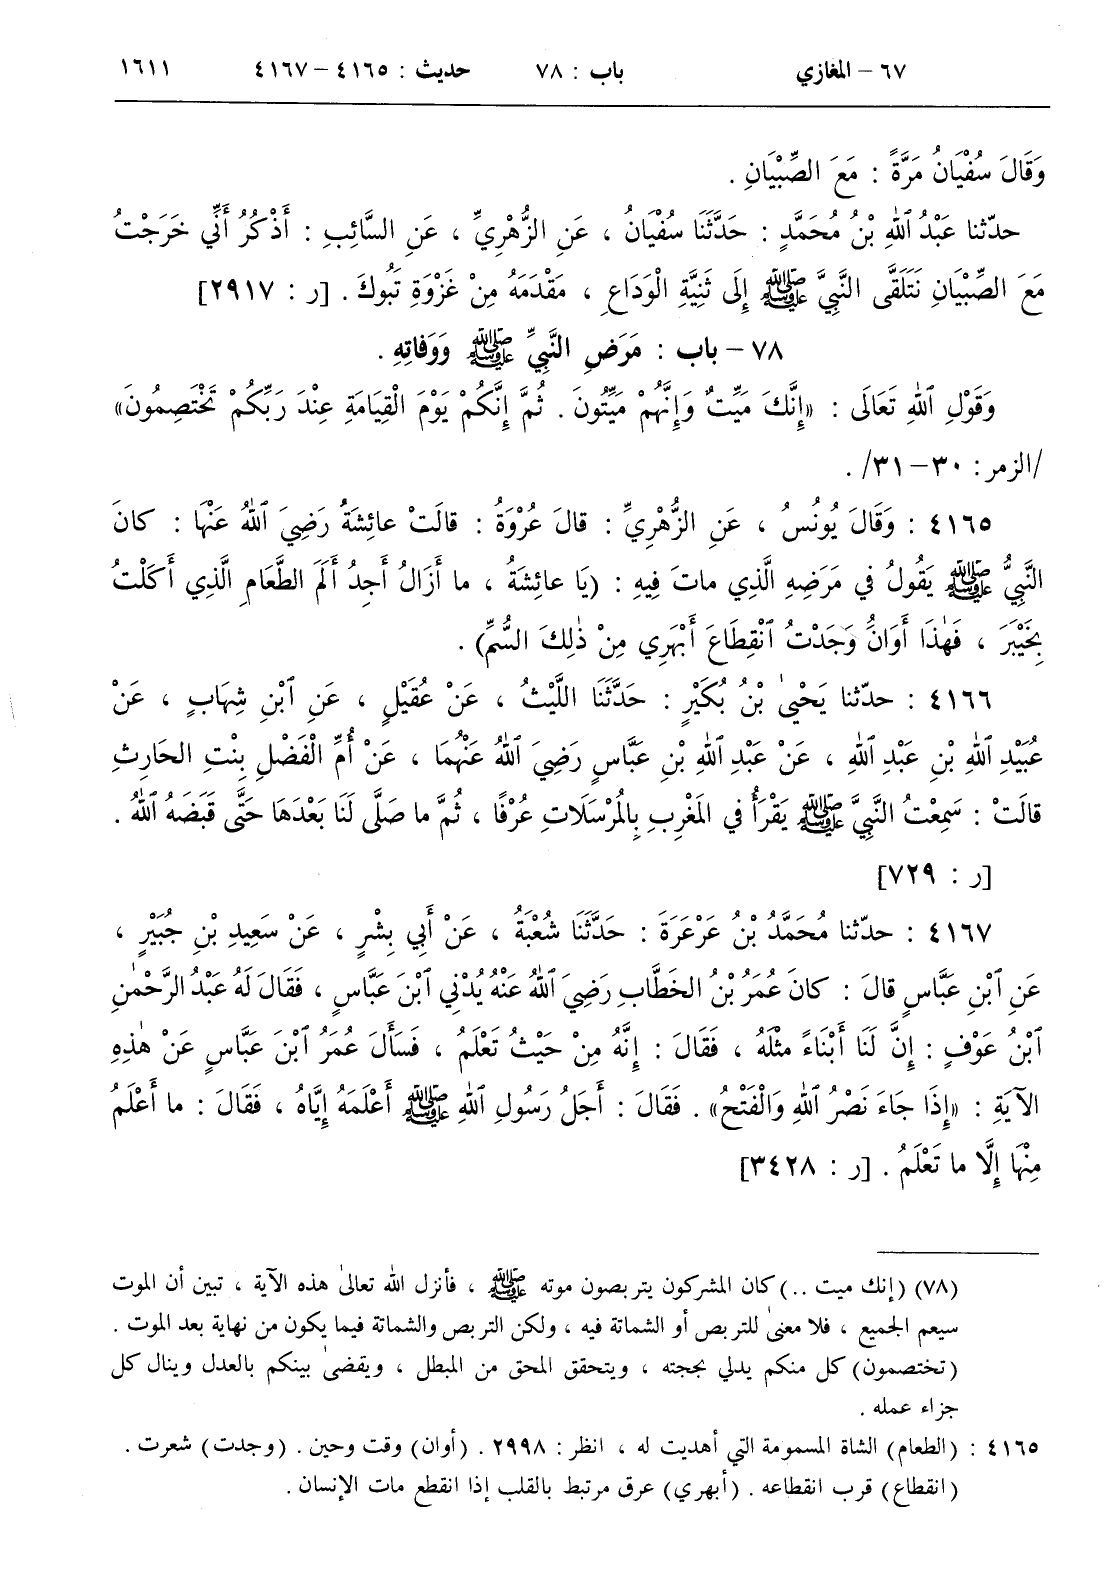 ٦٧ – المغازي باب : ٧٨ حديث : ٤١٦٥ – ٤١٦٧ ١٦١١
وَقَالَ سُفْيَانُ مَرَّةً : مَعَ الصِّبْيَانِ .
حدّثنا عَبْدُ ٱللهِ بْنُ مُحَمَّدٍ : حَدَّثَنَا سُفْيَانُ ، عَنِ الزُّهْرِيِّ ، عَنِ السَّائِبِ : أَذْكُرُ أَنِّي خَرَجْتُ
مَعَ الصِّبْيَانِ نَتَلَقَّى النَّبِيَّ ﷺ إِلَى ثَنِيَّةِ الْوَدَاعِ ، مَقْدَمَهُ مِنْ غَزْوَةِ تَبُوكَ . [ر : ٢٩١٧]
٧٨ – باب : مَرَضِ النَّبِيِّ ﷺ وَوَفاتِهِ .
وَقَوْلِ ٱللهِ تَعَالَى : «إِنَّكَ مَيِّتٌ وَإِنَّهُمْ مَيِّتُونَ . ثُمَّ إِنَّكُمْ يَوْمَ الْقِيَامَةِ عِنْدَ رَبِّكُمْ تَخْتَصِمُونَ»
/الزمر : ٣٠ – ٣١/ .
٤١٦٥ : وَقَالَ يُونُسُ ، عَنِ الزُّهْرِيِّ : قالَ عُرْوَةُ : قالَتْ عائِشَةُ رَضِيَ ٱللهُ عَنْهَا : كانَ
النَّبِيُّ ﷺ يَقُولُ في مَرَضِهِ الَّذِي ماتَ فِيهِ : (يَا عائِشَةُ ، ما أَزَالُ أَجِدُ أَلَمَ الطَّعَامِ الَّذِي أَكَلْتُ
بِخَيْبَرَ ، فَهٰذَا أَوَانُ وَجَدْتُ ٱنْقِطَاعَ أَبْهَرِي مِنْ ذٰلِكَ السُّمِّ) .
٤١٦٦ : حدّثنا يَحْيىٰ بْنُ بُكَيْرٍ : حَدَّثَنَا اللَّيْثُ ، عَنْ عُقَيْلٍ ، عَنِ ٱبْنِ شِهَابٍ ، عَنْ
عُبَيْدِ ٱللهِ بْنِ عَبْدِ ٱللهِ ، عَنْ عَبْدِ ٱللهِ بْنِ عَبَّاسٍ رَضِيَ ٱللهُ عَنْهُمَا ، عَنْ أُمِّ الْفَضْلِ بِنْتِ الحَارِثِ
قالَتْ : سَمِعْتُ النَّبِيَّ ﷺ يَقْرَأُ في المَغْرِبِ بِالمُرْسَلَاتِ عُرْفًا ، ثُمَّ ما صَلَّى لَنَا بَعْدَهَا حَتَّى قَبَضَهُ ٱللهُ .
[ر : ٧٢٩]
٤١٦٧ : حدّثنا مُحَمَّدُ بْنُ عَرْعَرَةَ : حَدَّثَنَا شُعْبَةُ ، عَنْ أَبِي بِشْرٍ ، عَنْ سَعِيدِ بْنِ جُبَيْرٍ ،
عَنِ ٱبْنِ عَبَّاسٍ قالَ : كانَ عُمَرُ بْنُ الخَطَّابِ رَضِيَ ٱللهُ عَنْهُ يُدْنِي ٱبْنَ عَبَّاسٍ ، فَقَالَ لَهُ عَبْدُ الرَّحْمٰنِ
ٱبْنُ عَوْفٍ : إِنَّ لَنَا أَبْنَاءً مِثْلَهُ ، فَقَالَ : إِنَّهُ مِنْ حَيْثُ تَعْلَمُ ، فَسَأَلَ عُمَرُ ٱبْنَ عَبَّاسٍ عَنْ هٰذِهِ
الآيَةِ : «إِذَا جَاءَ نَصْرُ ٱللهِ وَالْفَتْحُ» . فَقَالَ : أَجَلُ رَسُولِ ٱللهِ ﷺ أَعْلَمَهُ إِيَّاهُ ، فَقَالَ : ما أَعْلَمُ
مِنْهَا إِلَّا ما تَعْلَمُ . [ر : ٣٤٢٨]
(٧٨) (إنك ميت ..) كان المشركون يتربصون موته ﷺ ، فأنزل الله تعالىٰ هذه الآية ، تبين أن الموت
سيعم الجميع ، فلا معنىٰ للتربص أو الشماتة فيه ، ولكن التربص والشماتة فيما يكون من نهاية بعد الموت .
(تختصمون) كل منكم يدلي بحجته ، ويتحقق المحق من المبطل ، ويقضىٰ بينكم بالعدل وينال كل
جزاء عمله .
٤١٦٥ : (الطعام) الشاة المسمومة التي أهديت له ، انظر : ٢٩٩٨ . (أوان) وقت وحين . (وجدت) شعرت .
(انقطاع) قرب انقطاعه . (أبهري) عرق مرتبط بالقلب إذا انقطع مات الإنسان .